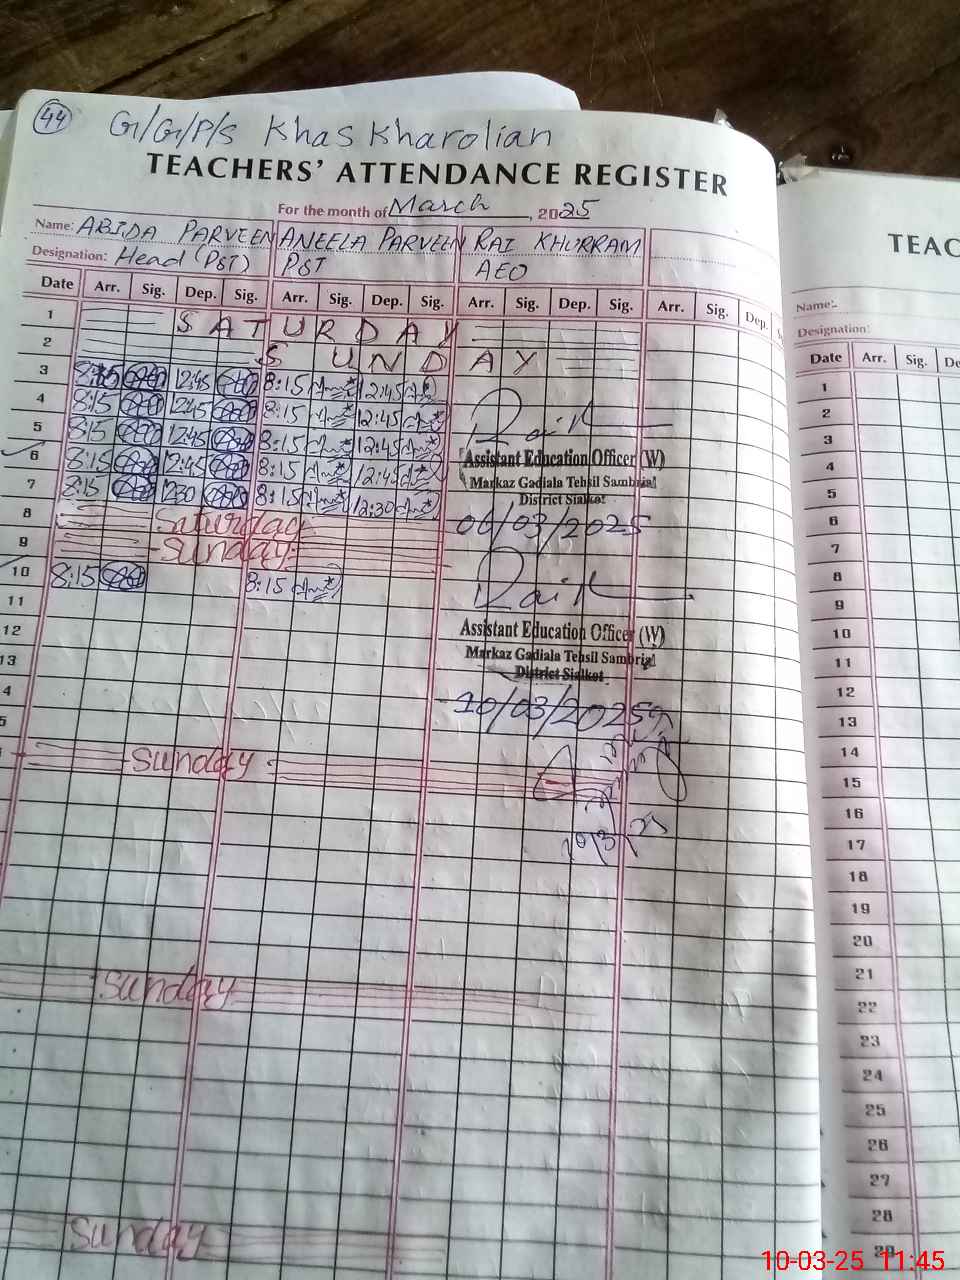 44
G/G/P/S Khas Kharolian
TEACHERS' ATTENDANCE REGISTER
For the month of March, 2025
Name: ABIDA PARVEEN ANEELA PARVEEN RAI KHURRAM
Designation: Head (PST) PST AEO
Date Arr. Sig. Dep. Sig. Arr. Sig. Dep. Sig. Arr. Sig. Dep. Sig. Arr. Sig. Dep.
1 SATURDAY
2 SUNDAY
3 8:15 12:45 8:15 12:45
4 8:15 12:45 8:15 12:45
5 8:15 12:45 8:15 12:45
6 8:15 12:45 8:15 12:45
7 8:15 12:30 8:15 12:30
8 Saturday
9 Sunday
10 8:15 8:15
11
12
13
4
5
Sunday
Sunday
Sunday
Assistant Education Officer (W)
Markaz Gadiala Tehsil Sambrial
District Sialkot
06/03/2025
Assistant Education Officer (W)
Markaz Gadiala Tehsil Sambrial
District Sialkot
10/03/2025
TEAC
Name:
Designation:
Date Arr. Sig. De
1
2
3
4
5
6
7
8
9
10
11
12
13
14
15
16
17
18
19
20
21
22
23
24
25
26
27
28
29
10-03-25 11:45